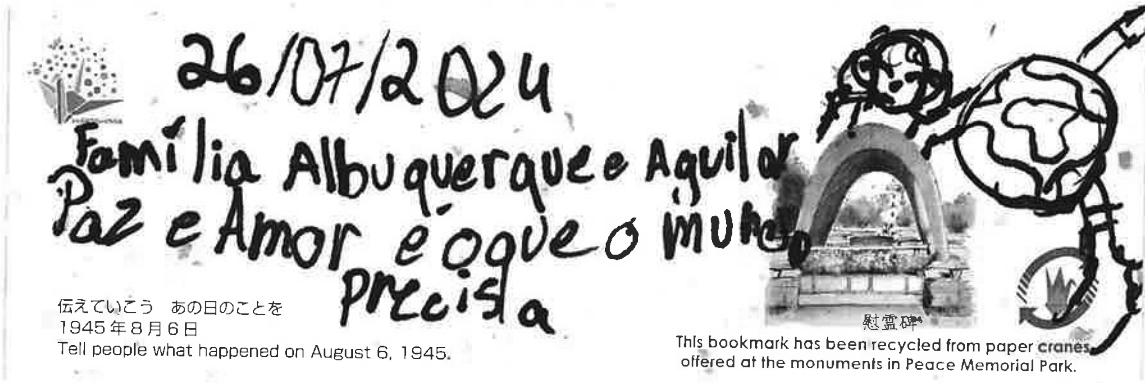 26/07/2024
Família Albuquerque e Aguilar
Paz e Amor é o que o mundo
precisa
伝えていこう あの日のことを
1945年8月6日
Tell people what happened on August 6, 1945.
慰霊碑
This bookmark has been recycled from paper cranes
offered at the monuments in Peace Memorial Park.